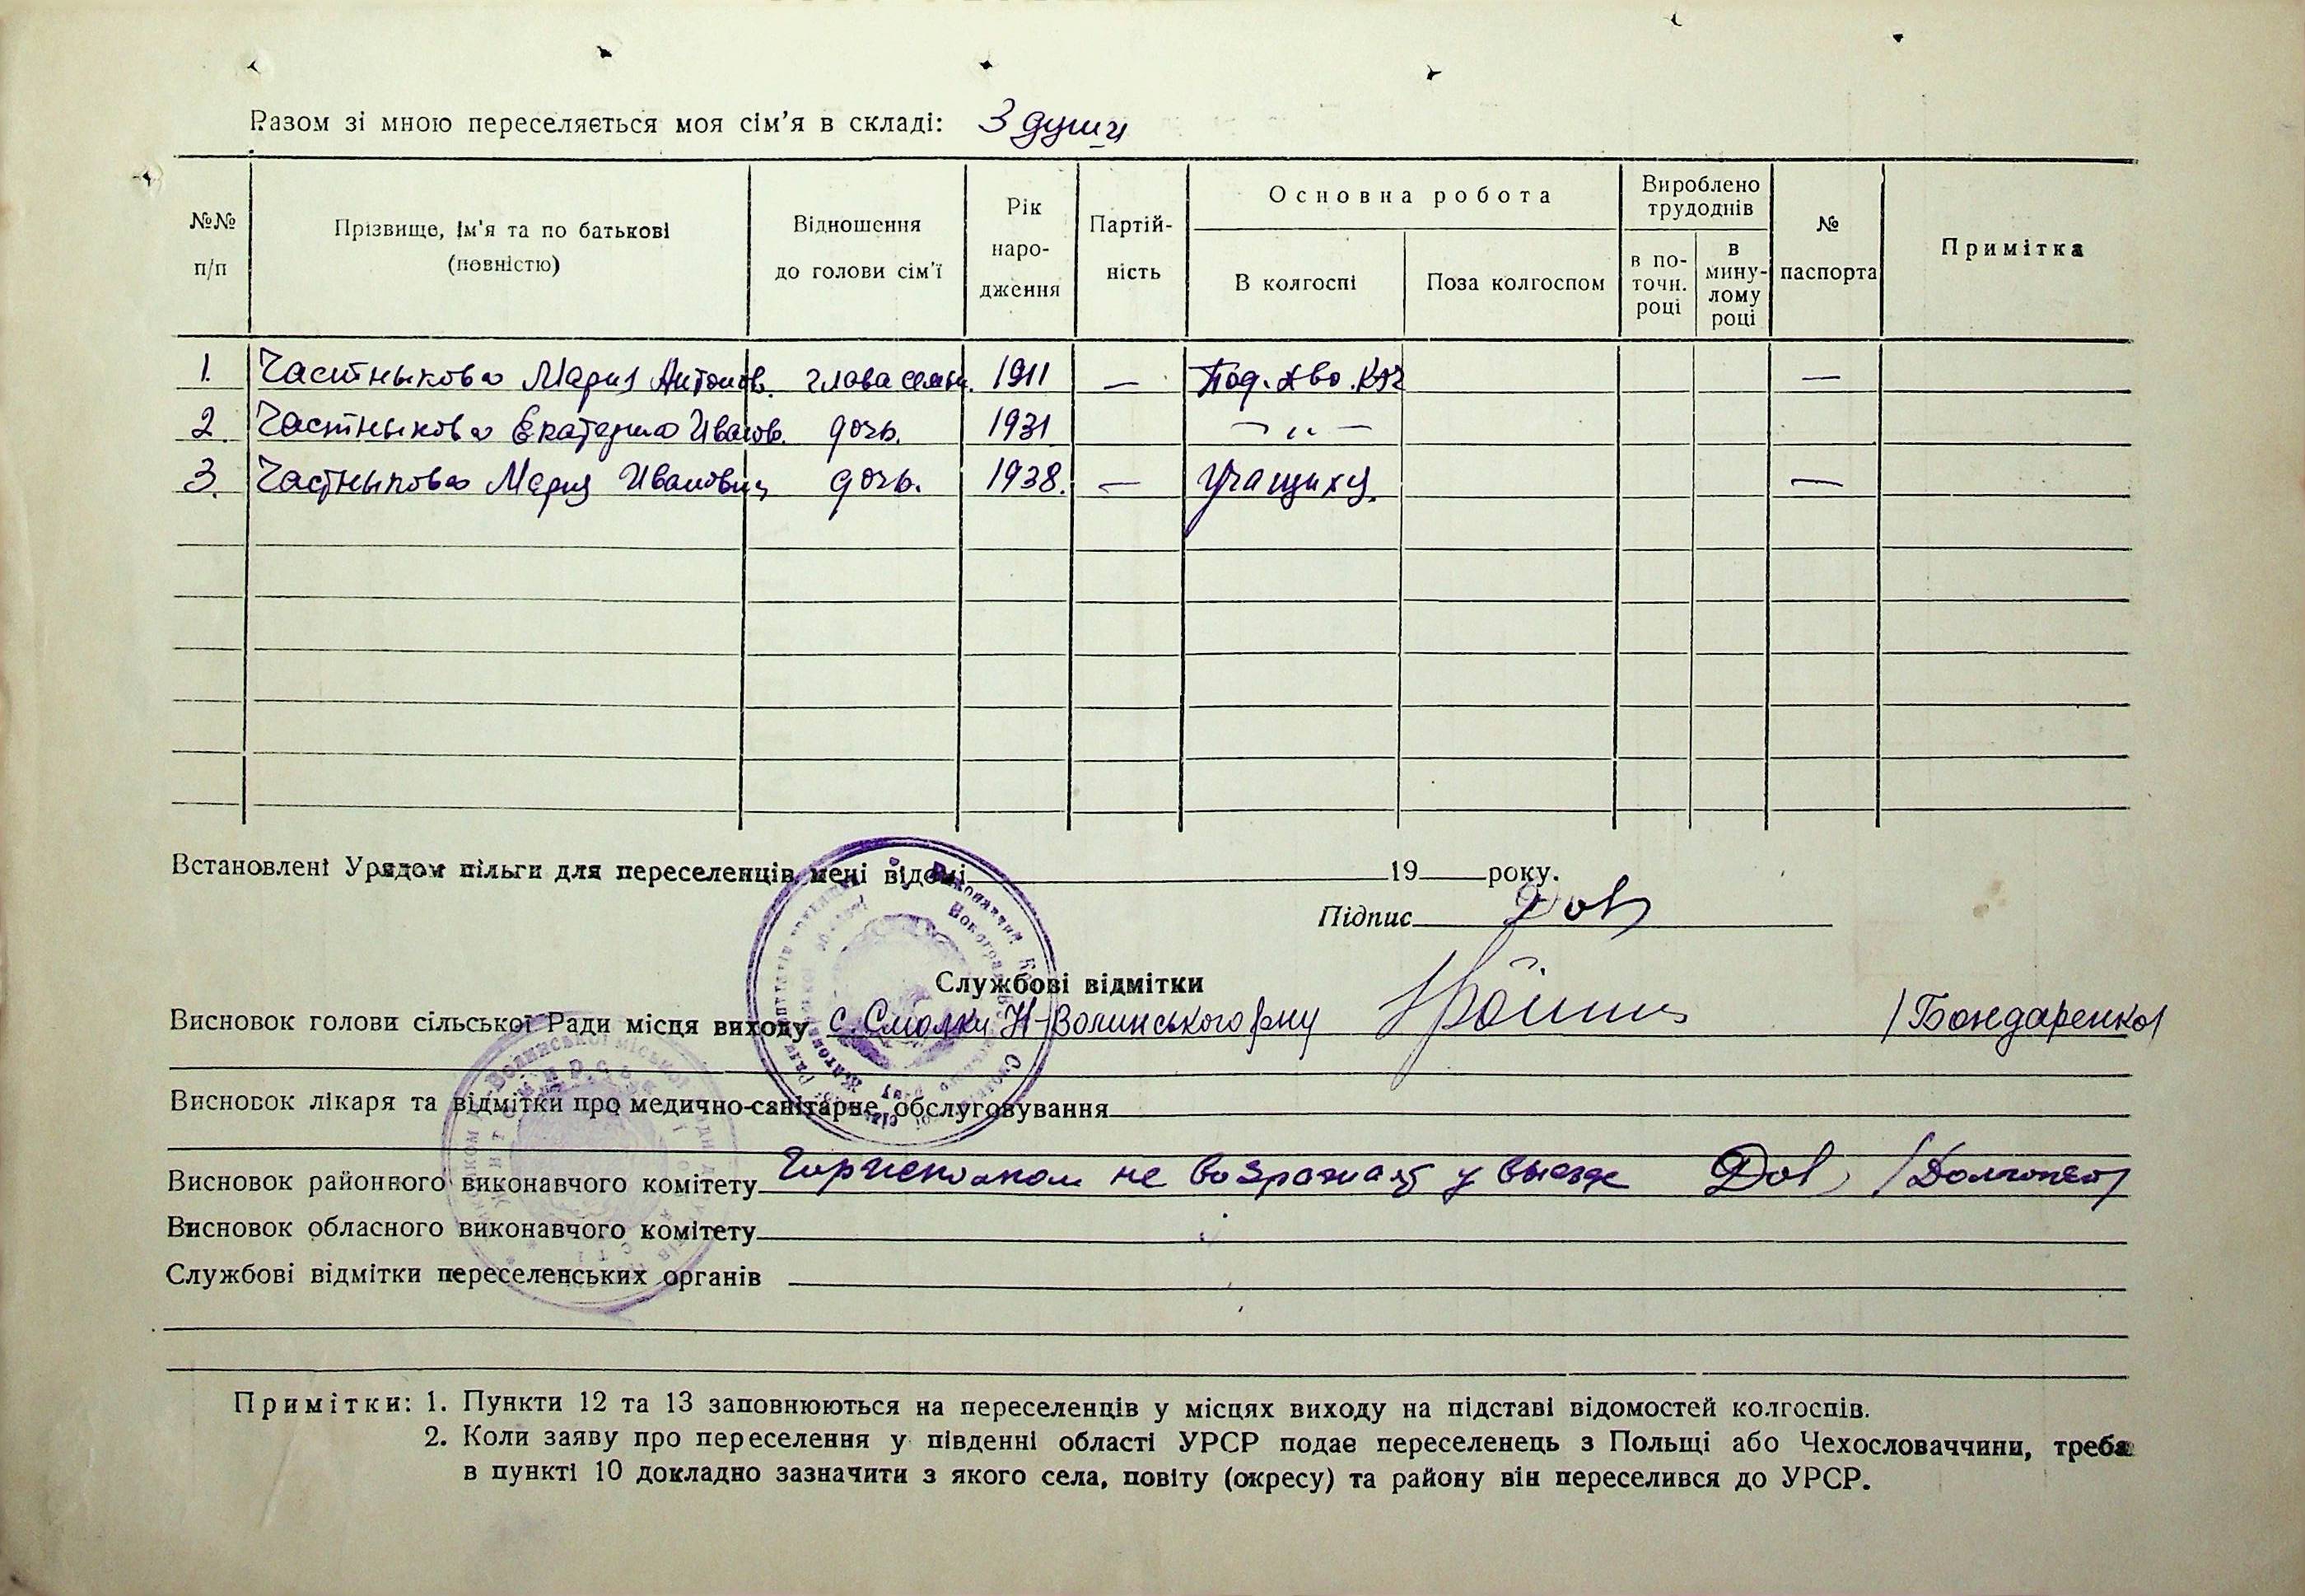 Разом зі мною переселяється моя сім'я в складі: 3 души
№№ п/п
Прізвище, ім'я та по батькові (повністю)
Відношення до голови сім'ї
Рік наро- дження
Партій- ність
Основна робота
В колгоспі
Поза колгоспом
Вироблено трудоднів
в по- точн. році
в мину- лому році
№ паспорта
Примітка
1. Частныкова Мария Антонов. глава семьи. 1911 — —
2. Частныкова Екатерина Иванов. дочь. 1931 — " —
3. Частныкова Мария Ивановна дочь. 1938. — Учащихся. —
Встановлені Урядом пільги для переселенців мені відомі 19 року.
Підпис
Службові відмітки
Висновок голови сільської Ради місця виходу с. Смолки Н-Волинського р-ну /Бондаренко/
Висновок лікаря та відмітки про медично-санітарне обслуговування
Висновок районного виконавчого комітету Горисполком не возражает у выезде
Висновок обласного виконавчого комітету
Службові відмітки переселенських органів
Примітки: 1. Пункти 12 та 13 заповнюються на переселенців у місцях виходу на підставі відомостей колгоспів.
2. Коли заяву про переселення у південні області УРСР подає переселенець з Польщі або Чехословаччини, треба
в пункті 10 докладно зазначити з якого села, повіту (окресу) та району він переселився до УРСР.